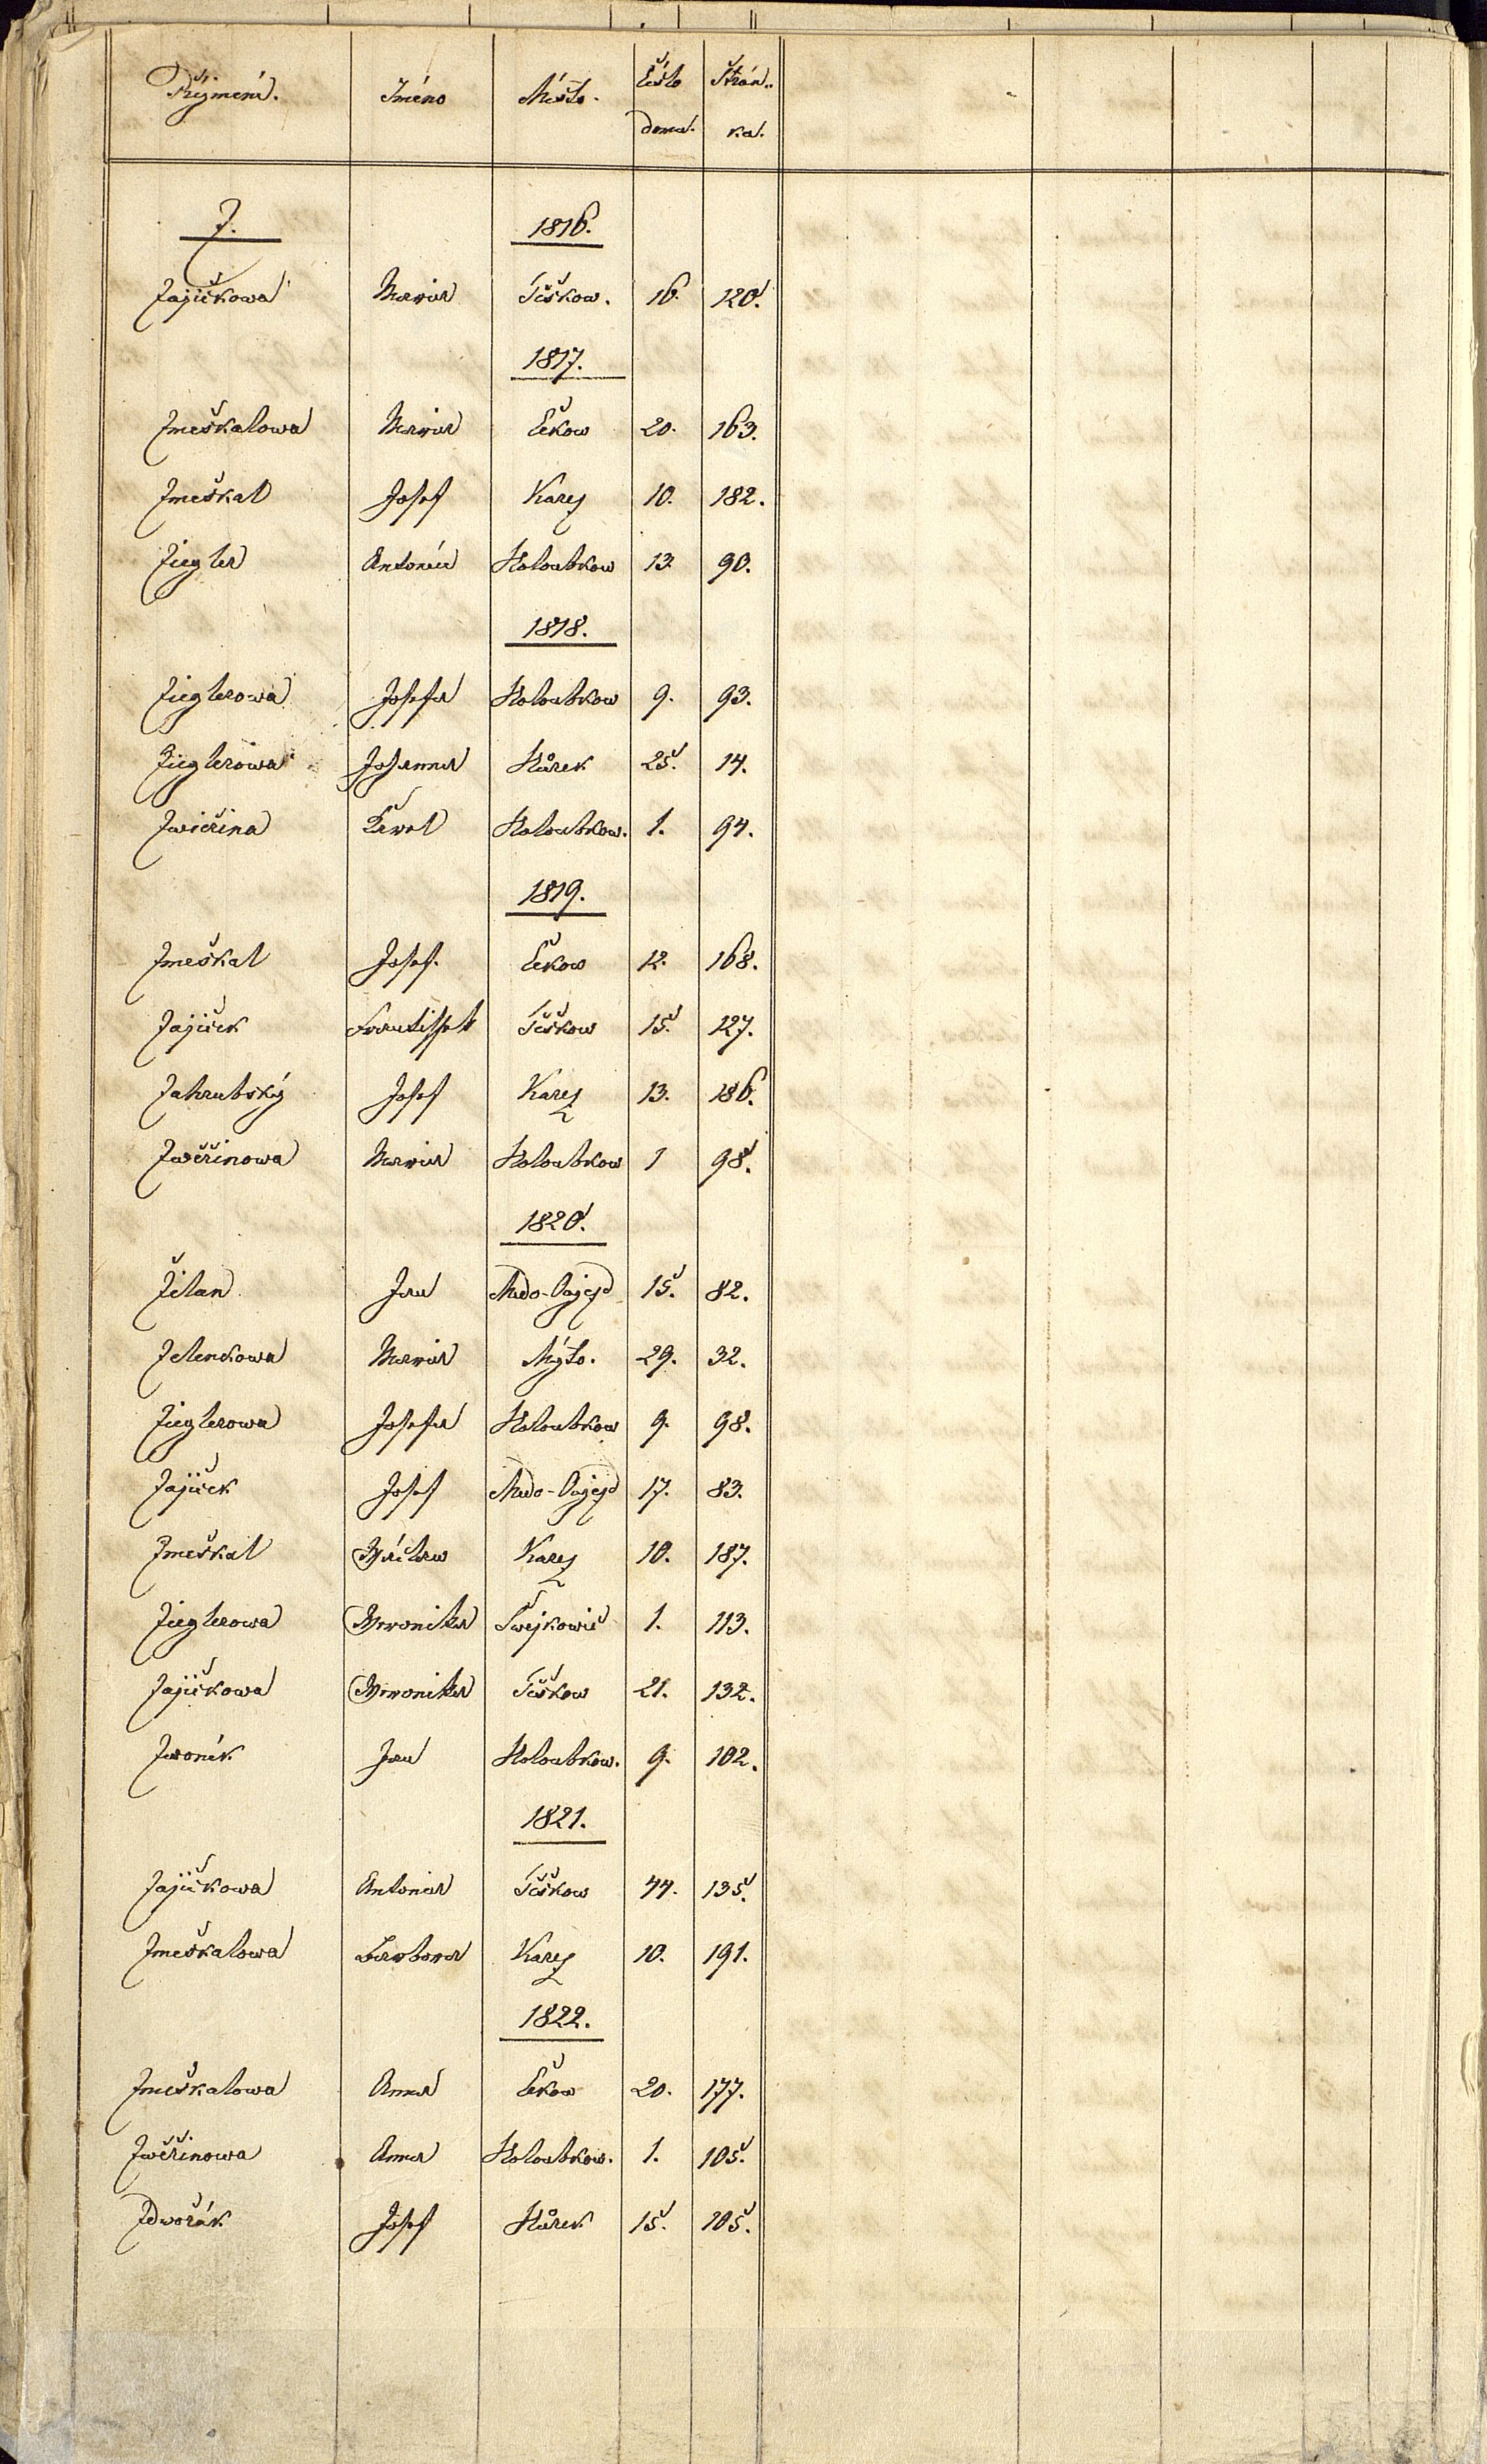 Přígmení. Jméno Místo. Čislo domu. Strán- ka.
Z. 1816.
Zajíčkowa Maria Těškow. 16. 120.
1817.
Zmeškalowa Maria Čekow 20. 163.
Zmeškal Josef Karez 10. 182.
Ziegler Antonín Holoubkow 13. 90.
1818.
Zieglerowa Josefa Holoubkow 9. 93.
Zieglerowa Johanna Hůrek 25. 14.
Zwiěřina Karel Holoubkow. 1. 94.
1819.
Zmeškal Josef. Čekow 12. 168.
Zajíček Frantissek Těškow 15. 127.
Zahrubský Josef Karez 13. 186.
Zwěřinowa Maria Holoubkow 1 98.
1820.
Žilan Jan Medo-Oujezd 15. 82.
Zelenkowa Maria Mýto. 29. 32.
Zieglerowa Josefa Holoubkow 9. 98.
Zajíček Josef Medo-Oujezd 17. 83.
Zmeškal Wáclaw Karez 10. 187.
Zieglerowa Weronika Swejkowic 1. 113.
Zajíčkowa Weronika Těškow 21. 132.
Zwoník Jan Holoubkow. 9. 102.
1821.
Zajíčkowa Antonia Těškow 44. 135.
Zmeškalowa Barbora Karez 10. 191.
1822.
Zmeškalowa Anna Čekow 20. 177.
Zwěřinowa Anna Holoubkow. 1. 105.
Zdwořák Josef Hůrek 15. 105.